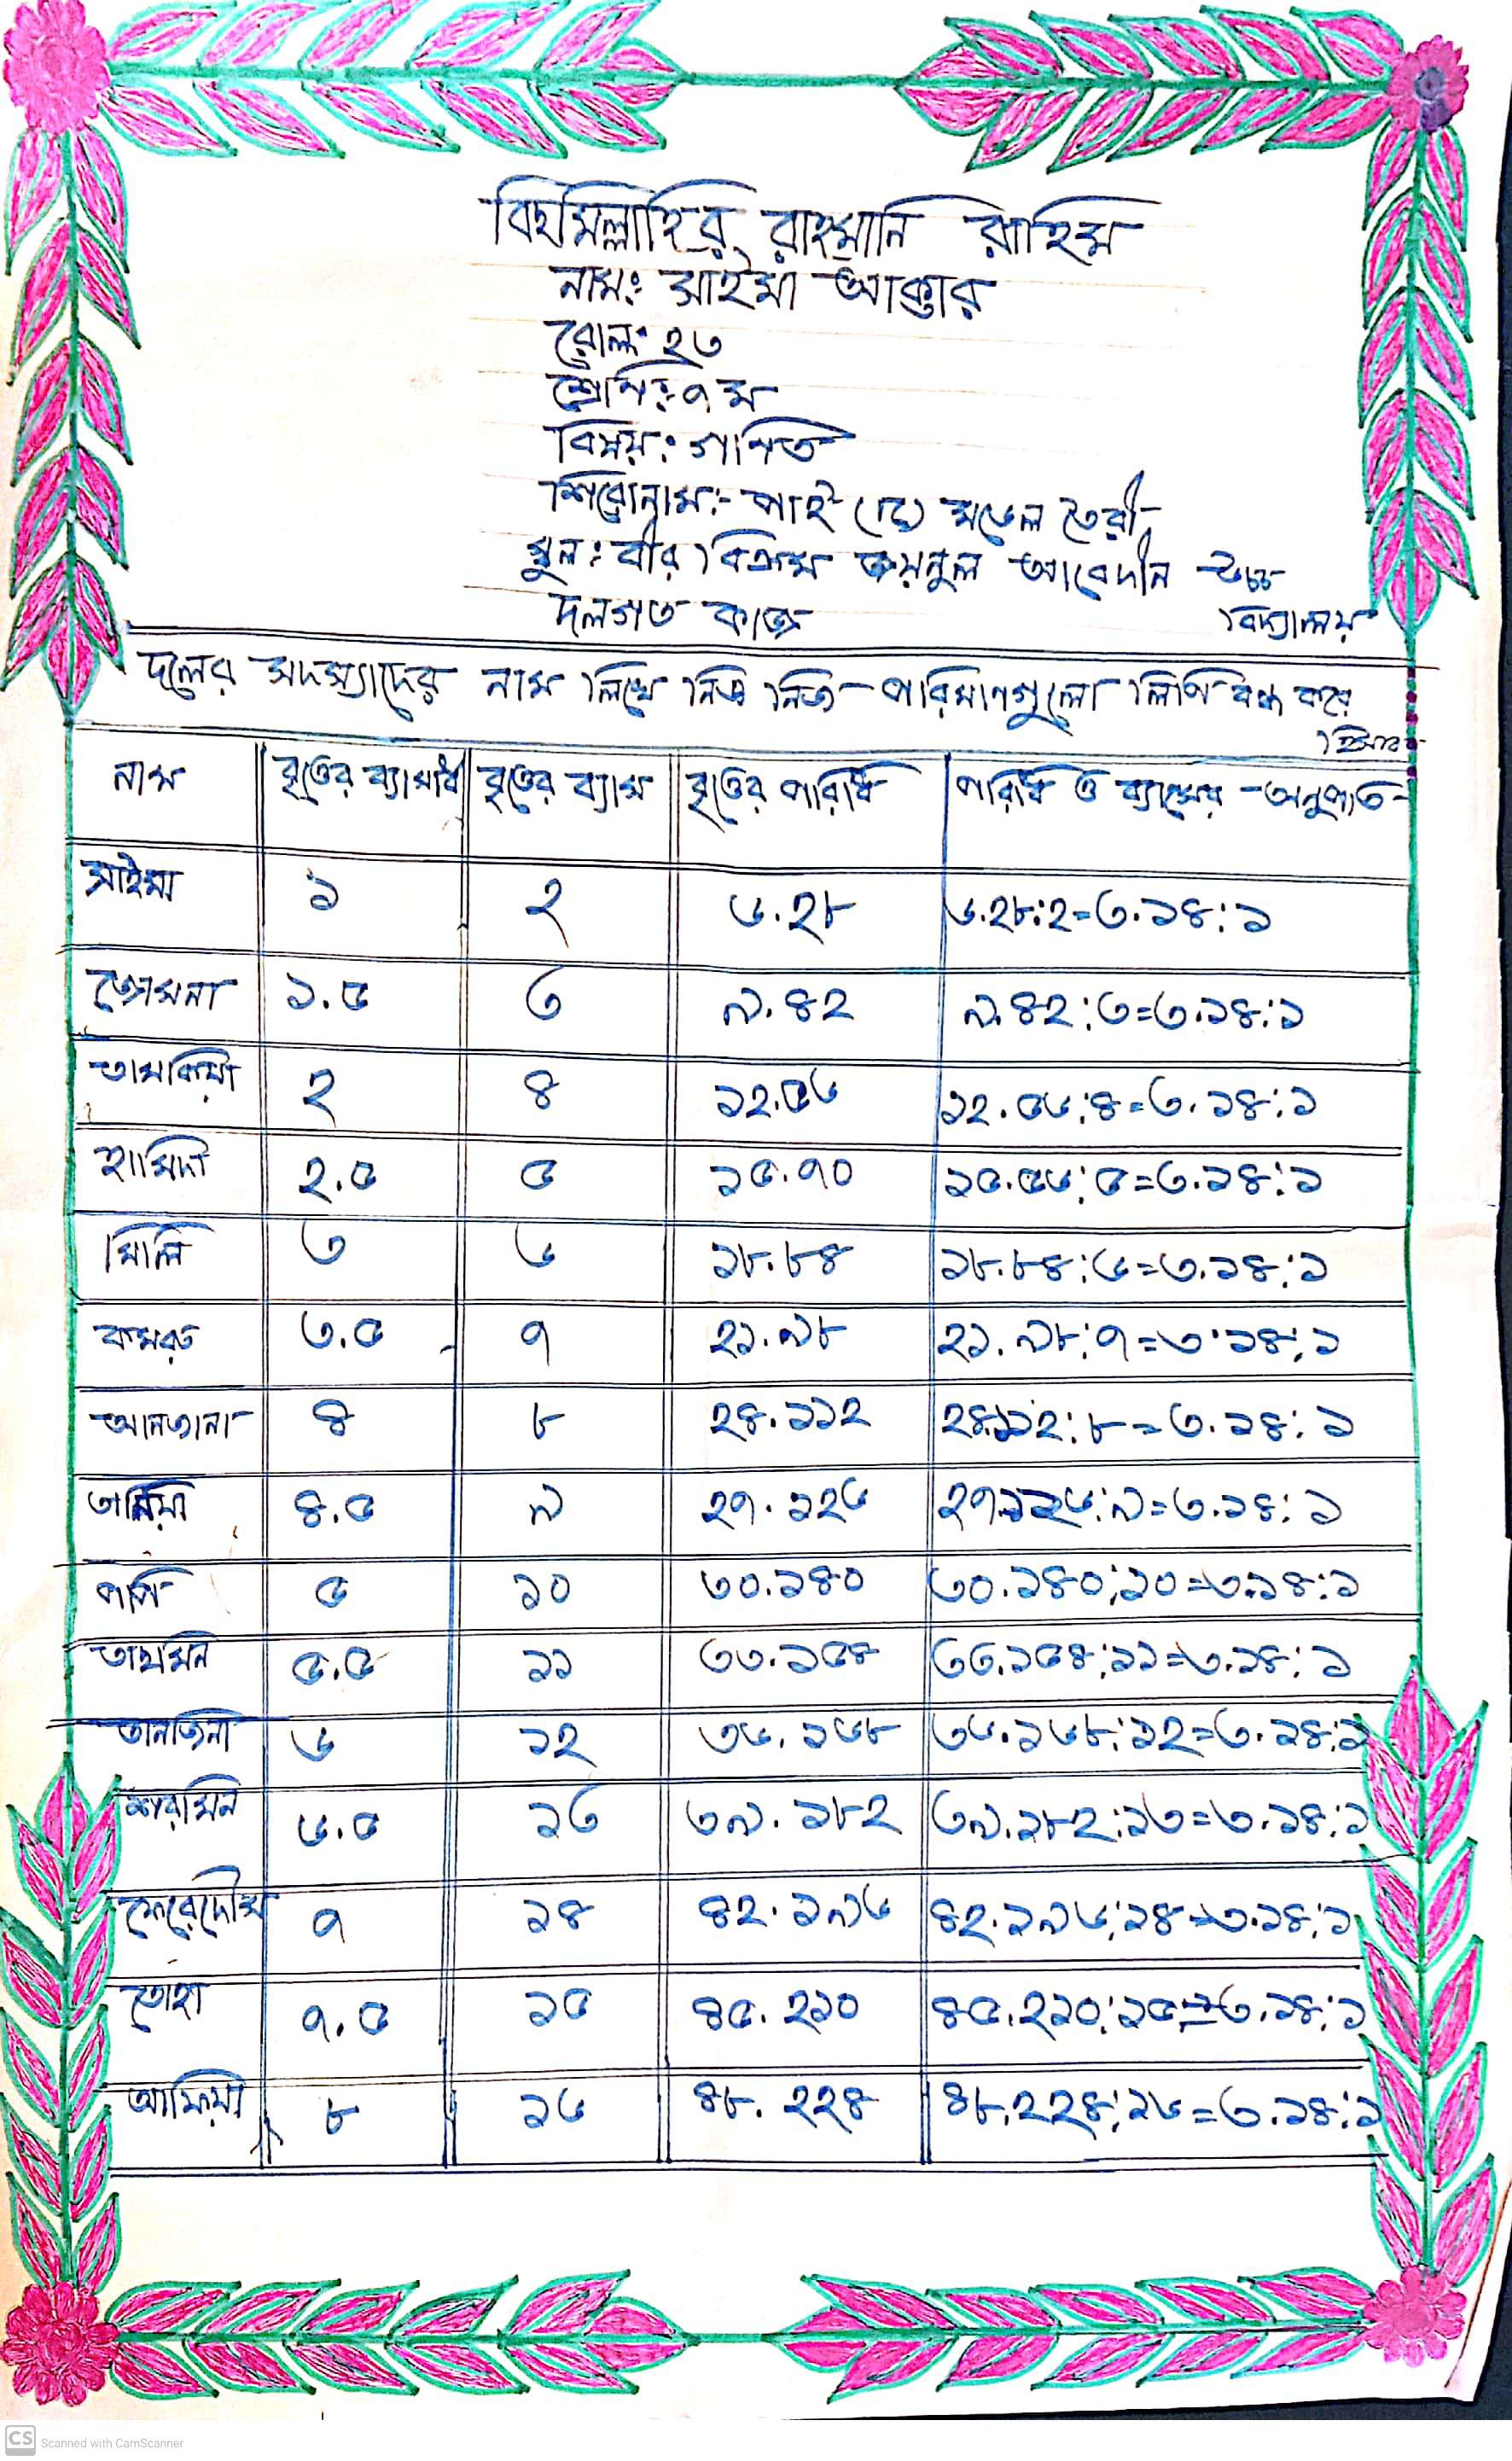 বিছমিল্লাহির রাহমানি রাহিম
নাম: সাইমা আক্তার
রোল: ২৩
শ্রেণি: ৭ম
বিষয়: গণিত
শিরোনাম:- পাই (π) মডেল তৈরী
স্কুল: বীর বিক্রম জয়নুল আবেদীন উচ্চ
বিদ্যালয়
দলগত কাজ
দলের সদস্যাদের নাম লিখে নিজ নিজ পরিমাণগুলো লিপি বদ্ধ করে
হিসাব
নাম বৃত্তের ব্যাসার্ধ বৃত্তের ব্যাস বৃত্তের পরিধি পরিধি ও ব্যাসের অনুপাত
সাইমা ১ ২ ৬.২৮ ৬.২৮:২=৩.১৪:১
১.৫ ৩ ৯.৪২ ৯.৪২:৩=৩.১৪:১
২ ৪ ১২.৫৬ ১২.৫৬:৪=৩.১৪:১
হামিদা ২.৫ ৫ ১৫.৭০ ১৫.৫৬:৫=৩.১৪:১
মিলি ৩ ৬ ১৮.৮৪ ১৮.৮৪:৬=৩.১৪:১
৩.৫ ৭ ২১.৯৮ ২১.৯৮:৭=৩.১৪:১
৪ ৮ ২৪.১১২ ২৪.১১২:৮=৩.১৪:১
তানিয়া ৪.৫ ৯ ২৭.১২৬ ২৭.১২৬:৯=৩.১৪:১
৫ ১০ ৩০.১৪০ ৩০.১৪০:১০=৩.১৪:১
৫.৫ ১১ ৩৩.১৫৪ ৩৩.১৫৪:১১=৩.১৪:১
তানজিনা ৬ ১২ ৩৬.১৬৮ ৩৬.১৬৮:১২=৩.১৪:১
শারমিন ৬.৫ ১৩ ৩৯.১৮২ ৩৯.১৮২:১৩=৩.১৪:১
ফেরদৌস ৭ ১৪ ৪২.১৯৬ ৪২.১৯৬:১৪=৩.১৪:১
তোহা ৭.৫ ১৫ ৪৫.২১০ ৪৫.২১০:১৫=৩.১৪:১
আফিয়া ৮ ১৬ ৪৮.২২৪ ৪৮.২২৪:১৬=৩.১৪:১
CS Scanned with CamScanner